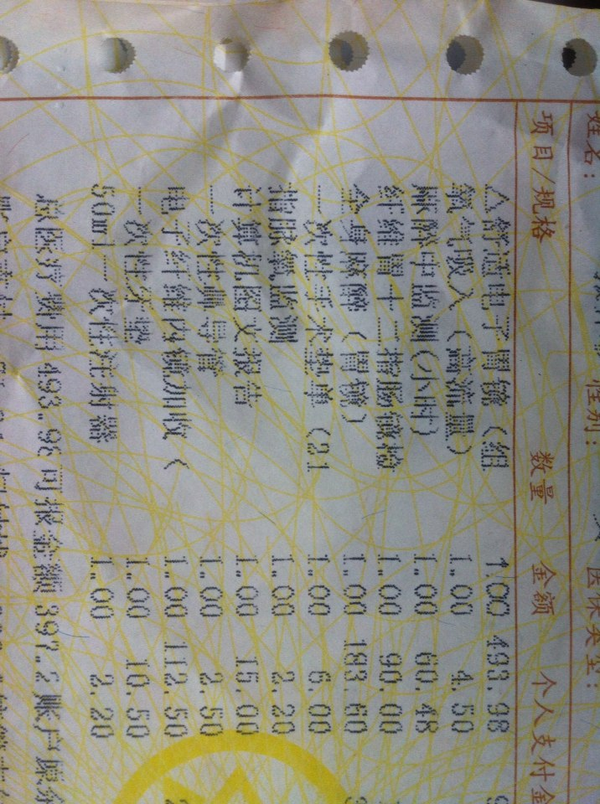 姓名: 性别: 医保类型:
项目/规格 数量 金额 个人支付金
△舒适电子胃镜(组 1.00 493.98
氧气吸入(高流量) 1.00 4.50
麻醉中监测(小时) 1.00 60.48
纤维胃十二指肠镜检 1.00 90.00
全身麻醉(胃镜) 1.00 183.60
一次性手术垫单(31 1.00 6.00
指脉氧监测 1.00 2.20
计算机图文报告 1.00 15.00
一次性肺导管 1.00 2.50
电子纤维内镜加收( 1.00 112.50
一次性牙垫 1.00 10.50
50ml一次性注射器 1.00 2.20
总医疗费用 493.98可报金额 397.2账户原余